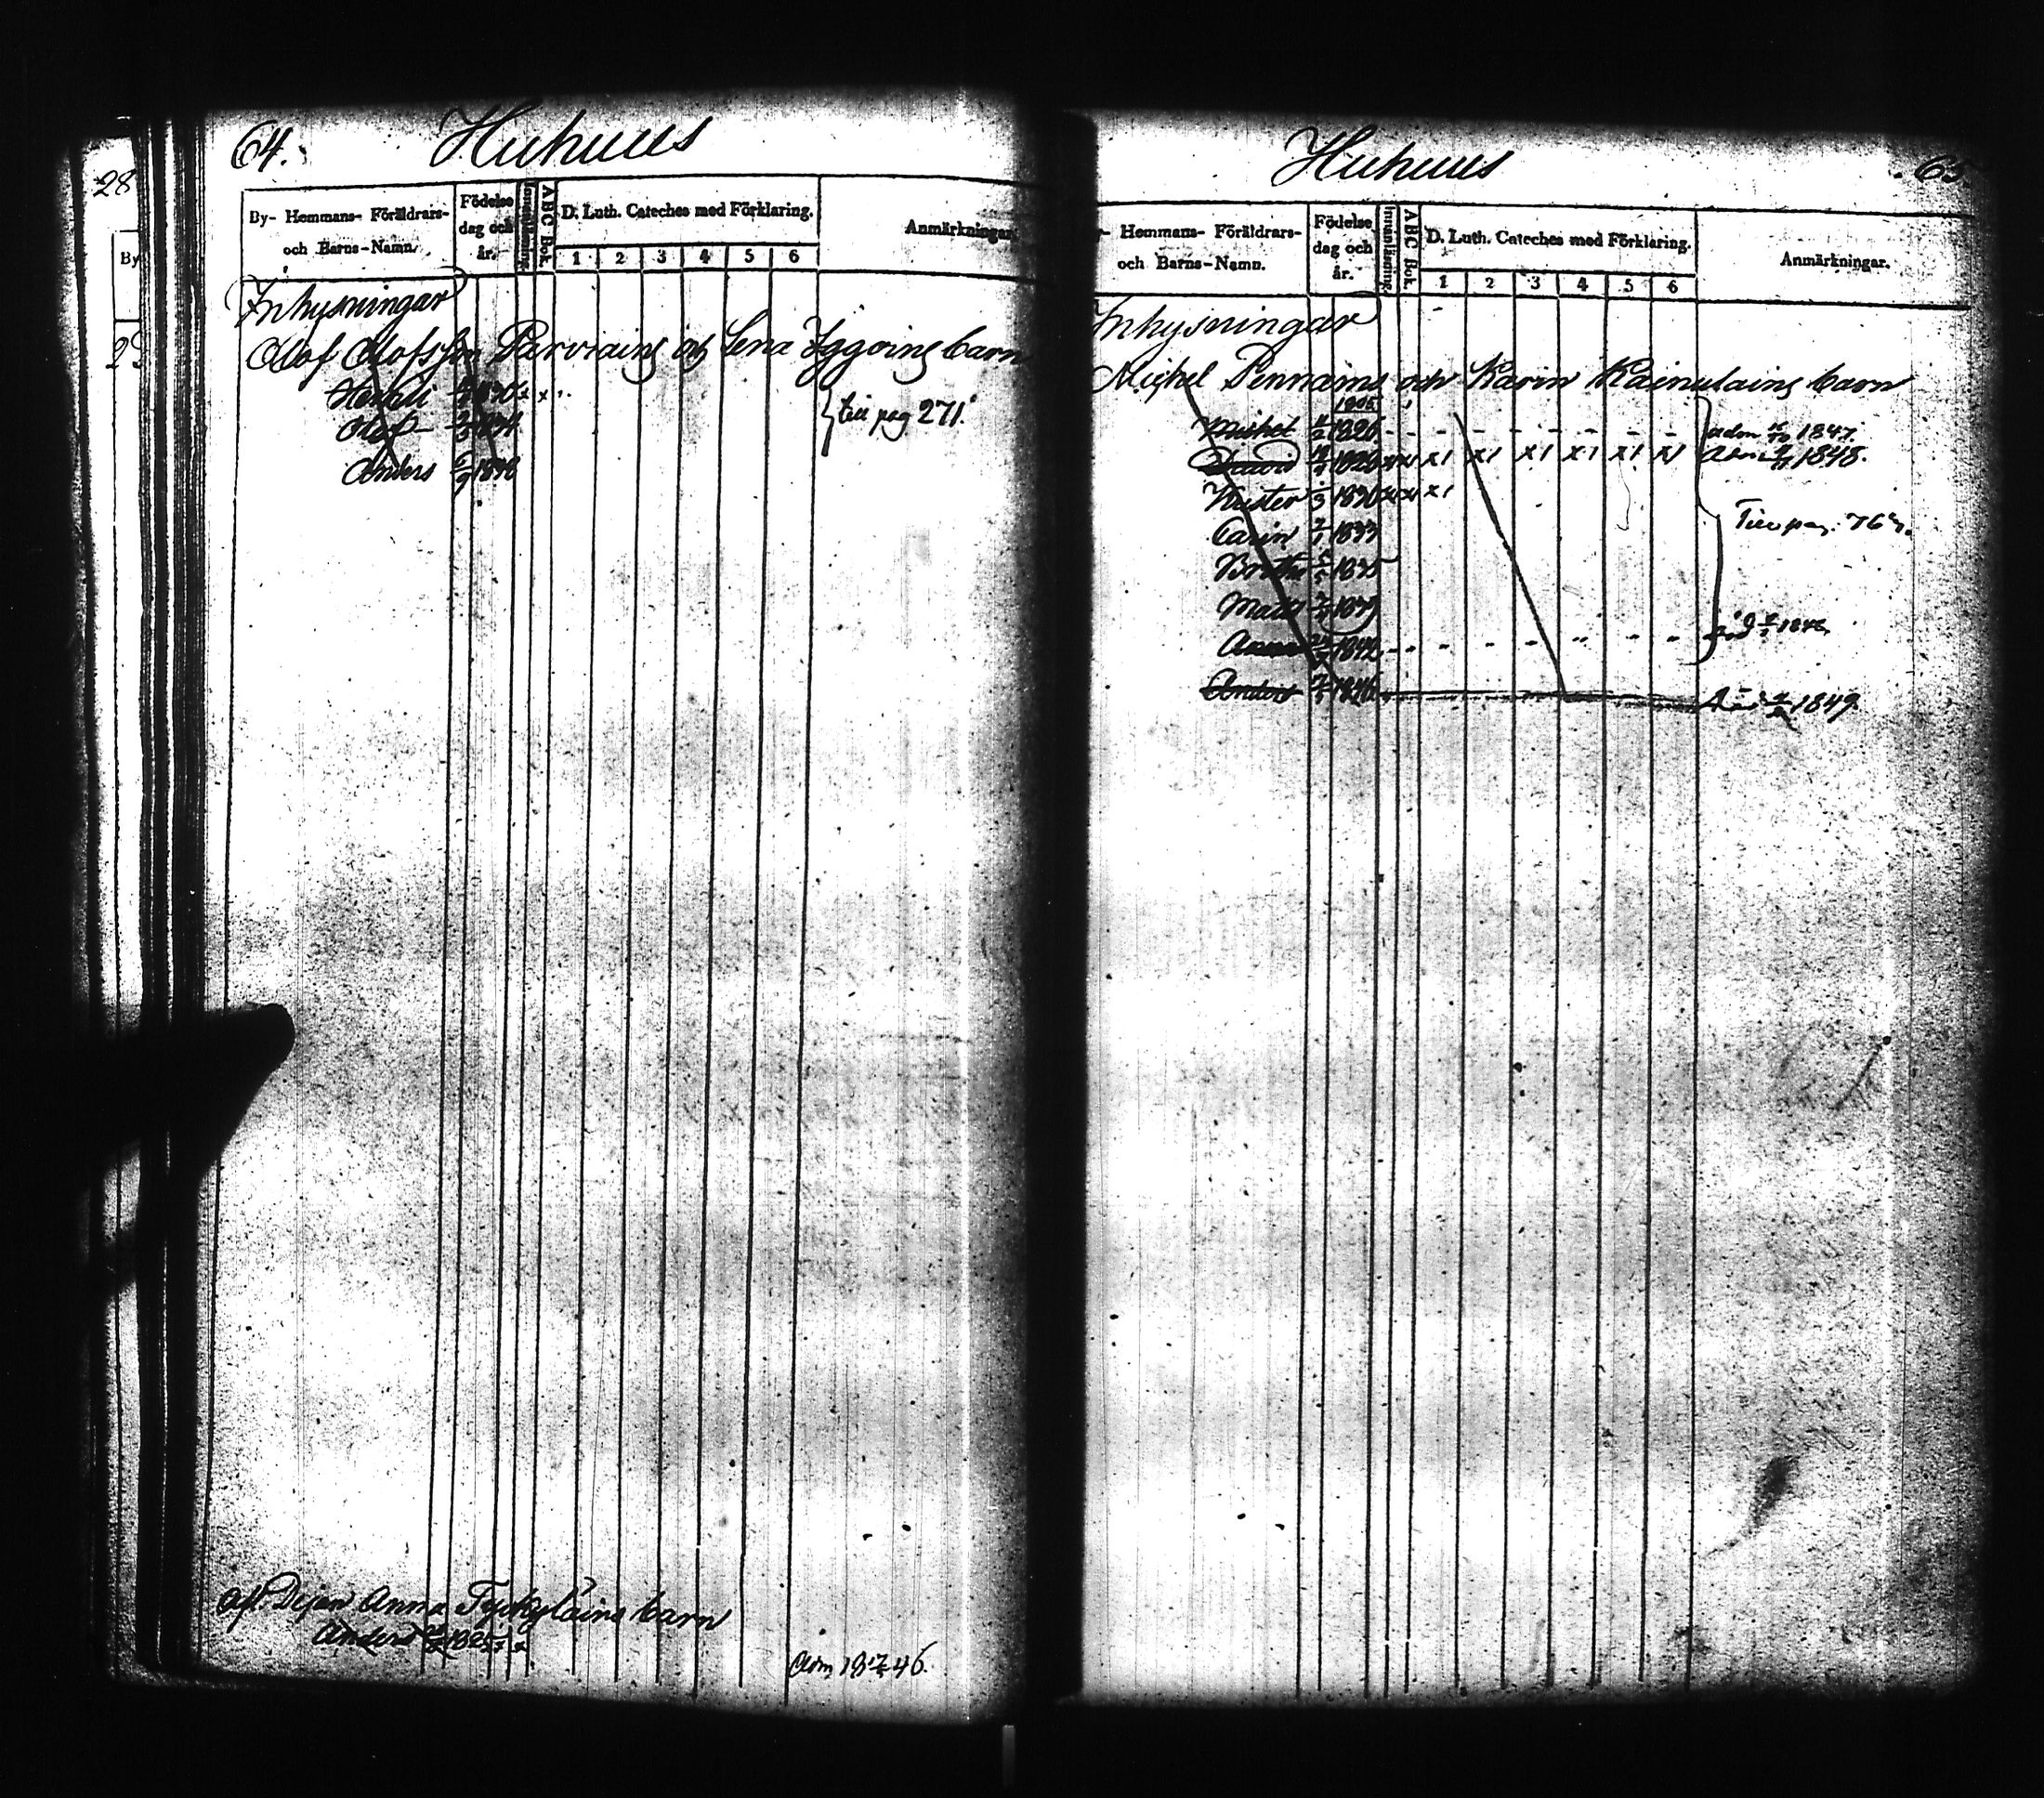 28
By
64.
Huhuus
By- Hemmans- Föräldrars- och Barns-Namn.
Födelse dag och år.
Innanläsning.
ABC Bok.
D. Luth. Cateches med Förklaring.
1 2 3 4 5 6
Anmärkningar
Inhysningar
Olof Olofsson Parviains och Lena Iggoins barn
1830 x x
Olof 1834
till pag 271.
Anders 1838
afl. Pigan Anna Tyrkyläins barn
Anders 1825
Adm 18 17/5 46.
Huhuus
65.
Hemmans- Föräldrars- och Barns-Namn.
Födelse dag och år.
Innanläsning.
ABC Bok.
D. Luth. Cateches med Förklaring.
1 2 3 4 5 6
Anmärkningar.
Inhysningar
Michel Pennains och Karin Kainulains barn
Michel 1826 - - - - - - - - adm 1847.
1828 x x x1 x1 x1 x1 x1 x1 1848.
1830 x x x1
Till pag. 767.
Carin 2/1 1833
1835
Matts 1839
1842 - - - - - - - - 1846
Anders 1846 1849.